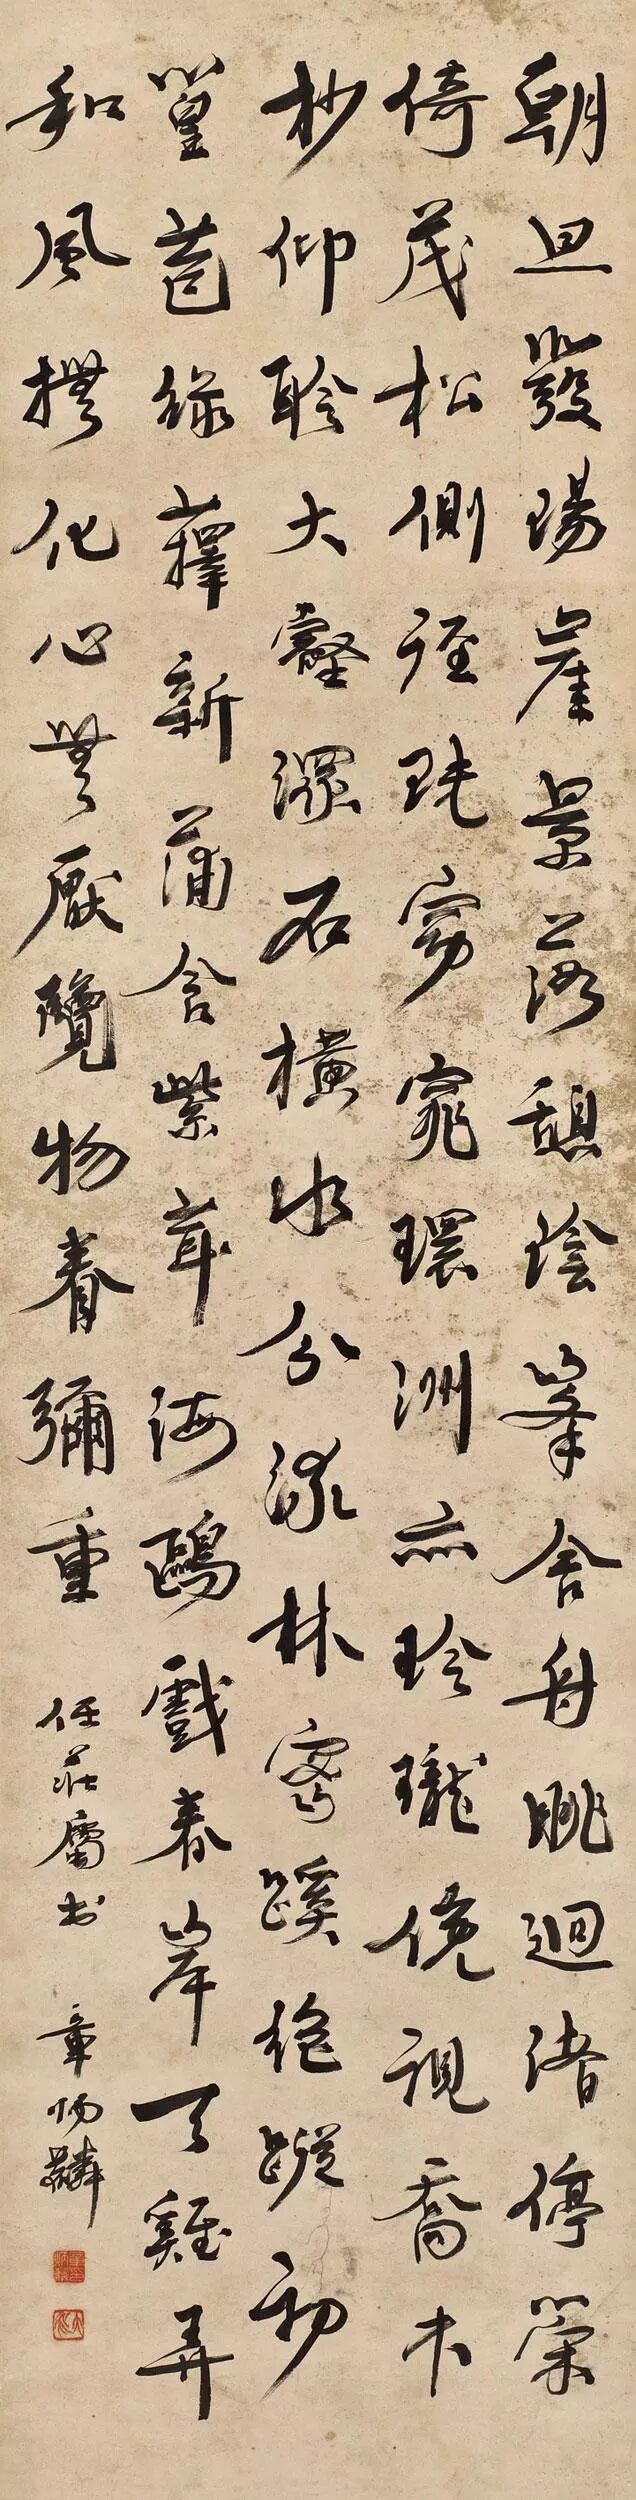 朝旦發陽崖景落憩陰峯舍舟眺迴渚停策
倚茂松側逕既窈窕環洲亦玲瓏俛視喬木
杪仰聆大壑灇石橫水分流林密蹊絕蹤初
篁苞綠籜新蒲含紫茸海鷗戲春岸天雞弄
和風撫化心無厭覽物眷彌重
任莊屬書 章炳麟